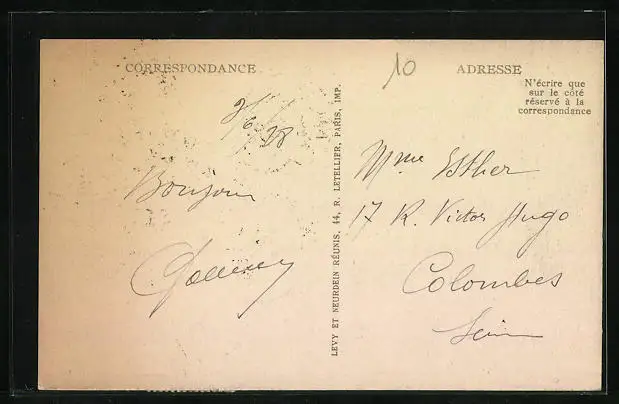 CORRESPONDANCE
10
ADRESSE
N'écrire que
sur le côté
réservé à la
correspondance
2/6/28
Bonjour
LEVY ET NEURDEIN RÉUNIS, 44, R. LETELLIER, PARIS, IMP.
Mme Esther
17 R. Victor Hugo
Colombes
Seine